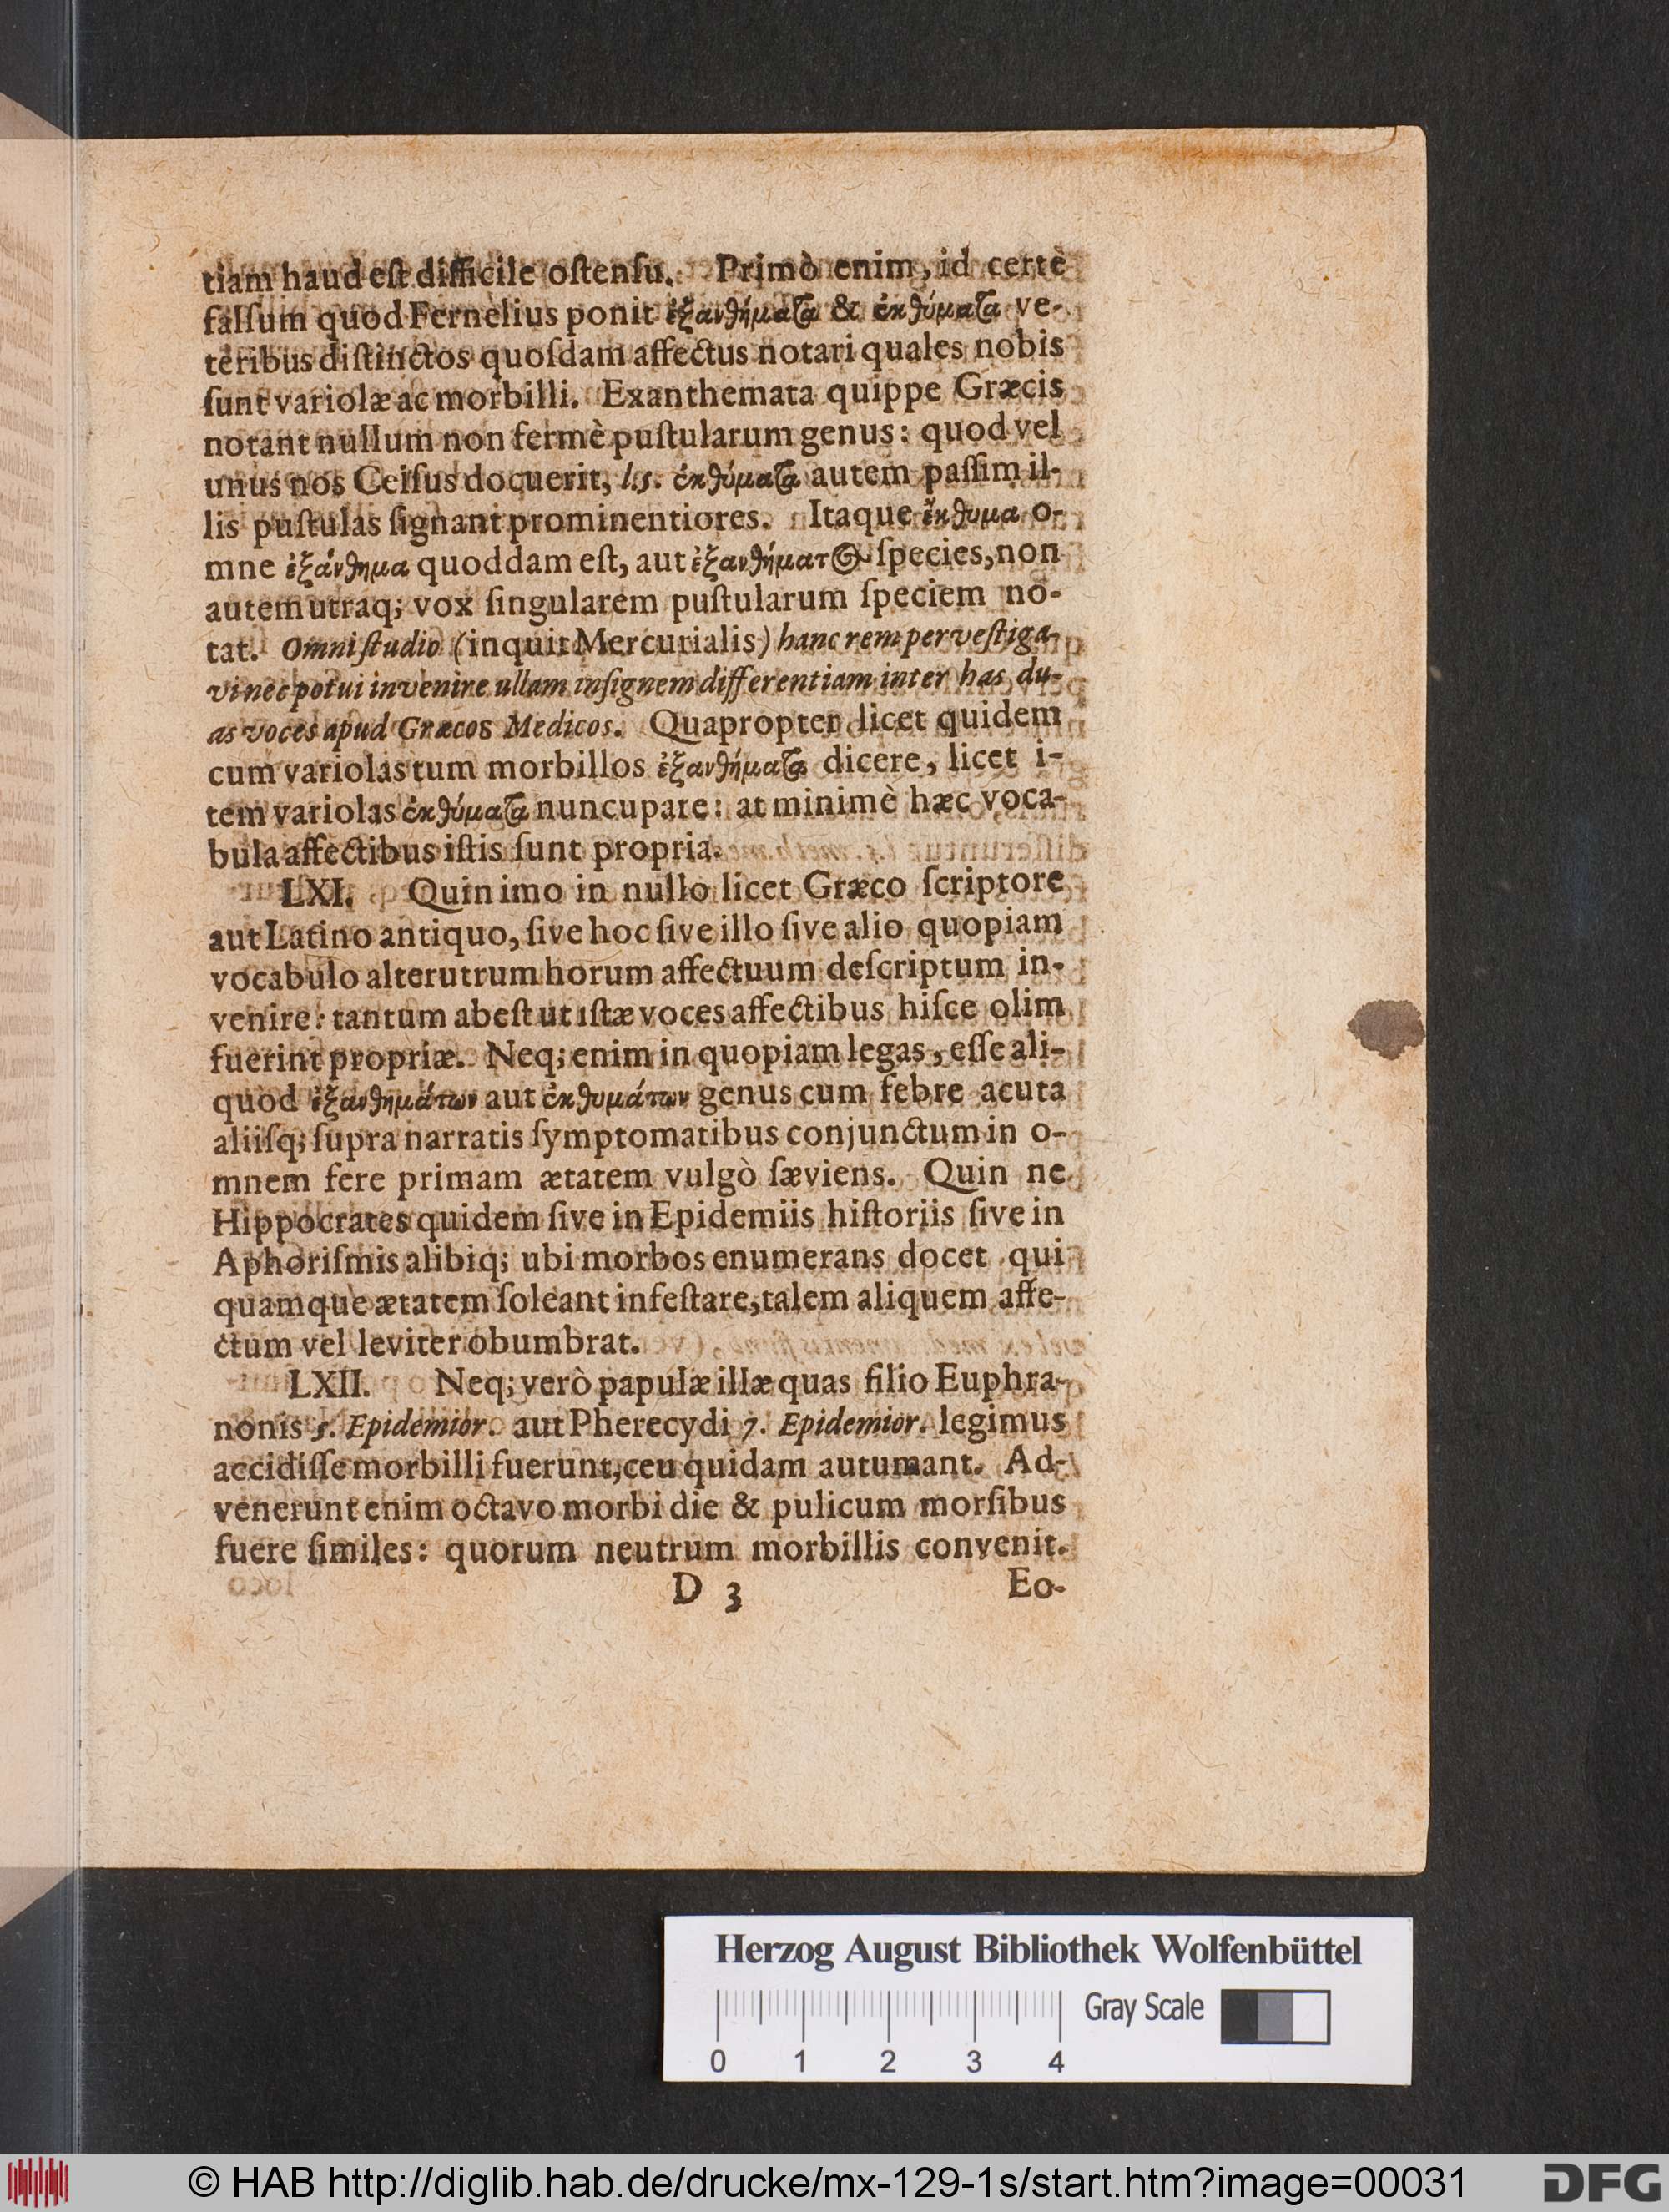 tiam haud eſt difficile oſtenſu. Primò enim, id certè
falſum quod Fernelius ponit ἐξανθήματα & ἐκθύματα ve-
teribus diſtinctos quoſdam affectus notari quales nobis
ſunt variolæ ac morbilli. Exanthemata quippe Græcis
notant nullum non fermè puſtularum genus: quod vel
unus nos Celſus docuerit, l.5. ἐκθύματα autem paſſim il-
lis puſtulas ſignant prominentiores. Itaque ἔκθυμα o-
mne ἐξάνθημα quoddam eſt, aut ἐξανθήματος ſpecies, non
autem utraq; vox ſingularem puſtularum ſpeciem no-
tat. Omni ſtudio (inquit Mercurialis) hanc rem perveſtiga-
vi nec potui invenire ullam inſignem differentiam inter has du-
as voces apud Græcos Medicos. Quapropter licet quidem
cum variolas tum morbillos ἐξανθήματα dicere, licet i-
tem variolas ἐκθύματα nuncupare: at minimè hæc voca-
bula affectibus iſtis ſunt propria.
LXI. Quin imo in nullo licet Græco ſcriptore
aut Latino antiquo, ſive hoc ſive illo ſive alio quopiam
vocabulo alterutrum horum affectuum deſcriptum in-
venire: tantum abeſt ut iſtæ voces affectibus hiſce olim
fuerint propriæ. Neq; enim in quopiam legas, eſſe ali-
quod ἐξανθημάτων aut ἐκθυμάτων genus cum febre acuta
aliiſq; ſupra narratis ſymptomatibus conjunctum in o-
mnem fere primam ætatem vulgò ſæviens. Quin ne
Hippocrates quidem ſive in Epidemiis hiſtoriis ſive in
Aphoriſmis alibiq; ubi morbos enumerans docet qui
quamque ætatem ſoleant infeſtare, talem aliquem affe-
ctum vel leviter obumbrat.
LXII. Neq; verò papulæ illæ quas filio Euphra-
nonis 5. Epidemior. aut Pherecydi 7. Epidemior. legimus
accidiſſe morbilli fuerunt, ceu quidam autumant. Ad-
venerunt enim octavo morbi die & pulicum morſibus
fuere ſimiles: quorum neutrum morbillis convenit.
D 3 Eo-
Herzog August Bibliothek Wolfenbüttel
Gray Scale
0 1 2 3 4
© HAB http://diglib.hab.de/drucke/mx-129-1s/start.htm?image=00031
DFG